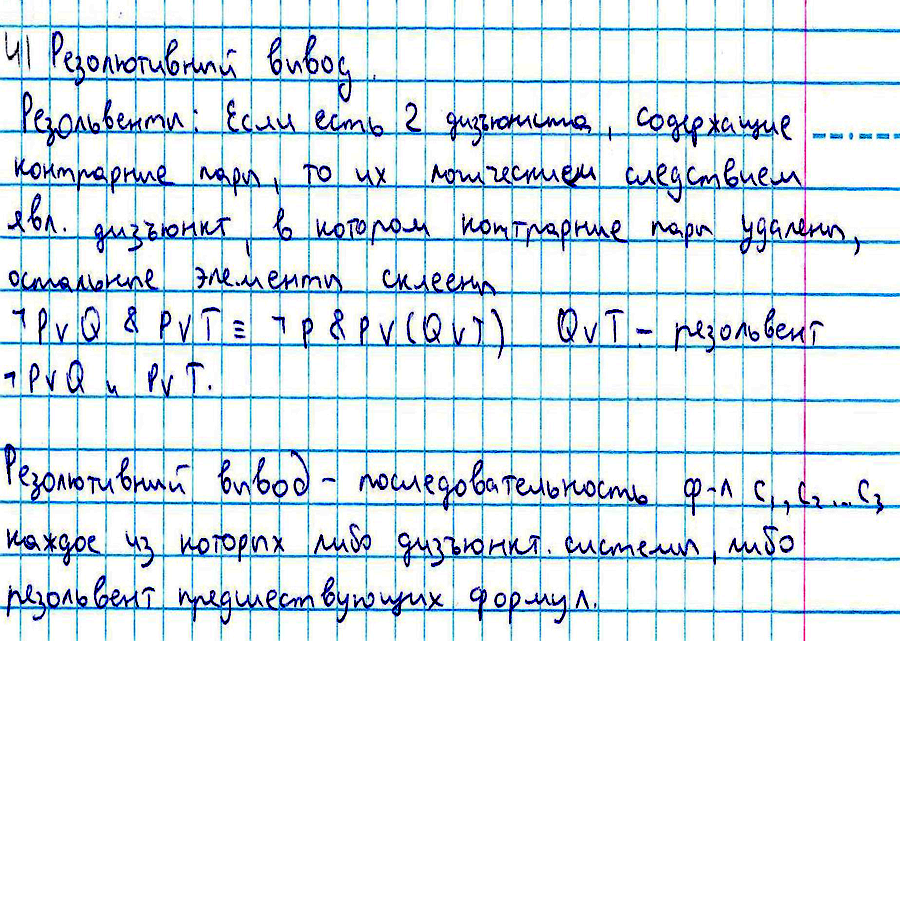 41 Резолютивный вывод.
Резольвенты: Если есть 2 дизъюнкта, содержащие
контрарные пары, то их логическием следствием
явл. дизъюнкт, в котором контрарные пары удалены,
остальные элементы склеены
¬P∨Q & P∨T ≡ ¬P & P∨(Q∨T) Q∨T – резольвент
¬P∨Q и P∨T.
Резолютивный вывод – последовательность ф-л C₁, C₂ ... C₃
каждое из которых либо дизъюнкт. системы, либо
резольвент предшествующих формул.